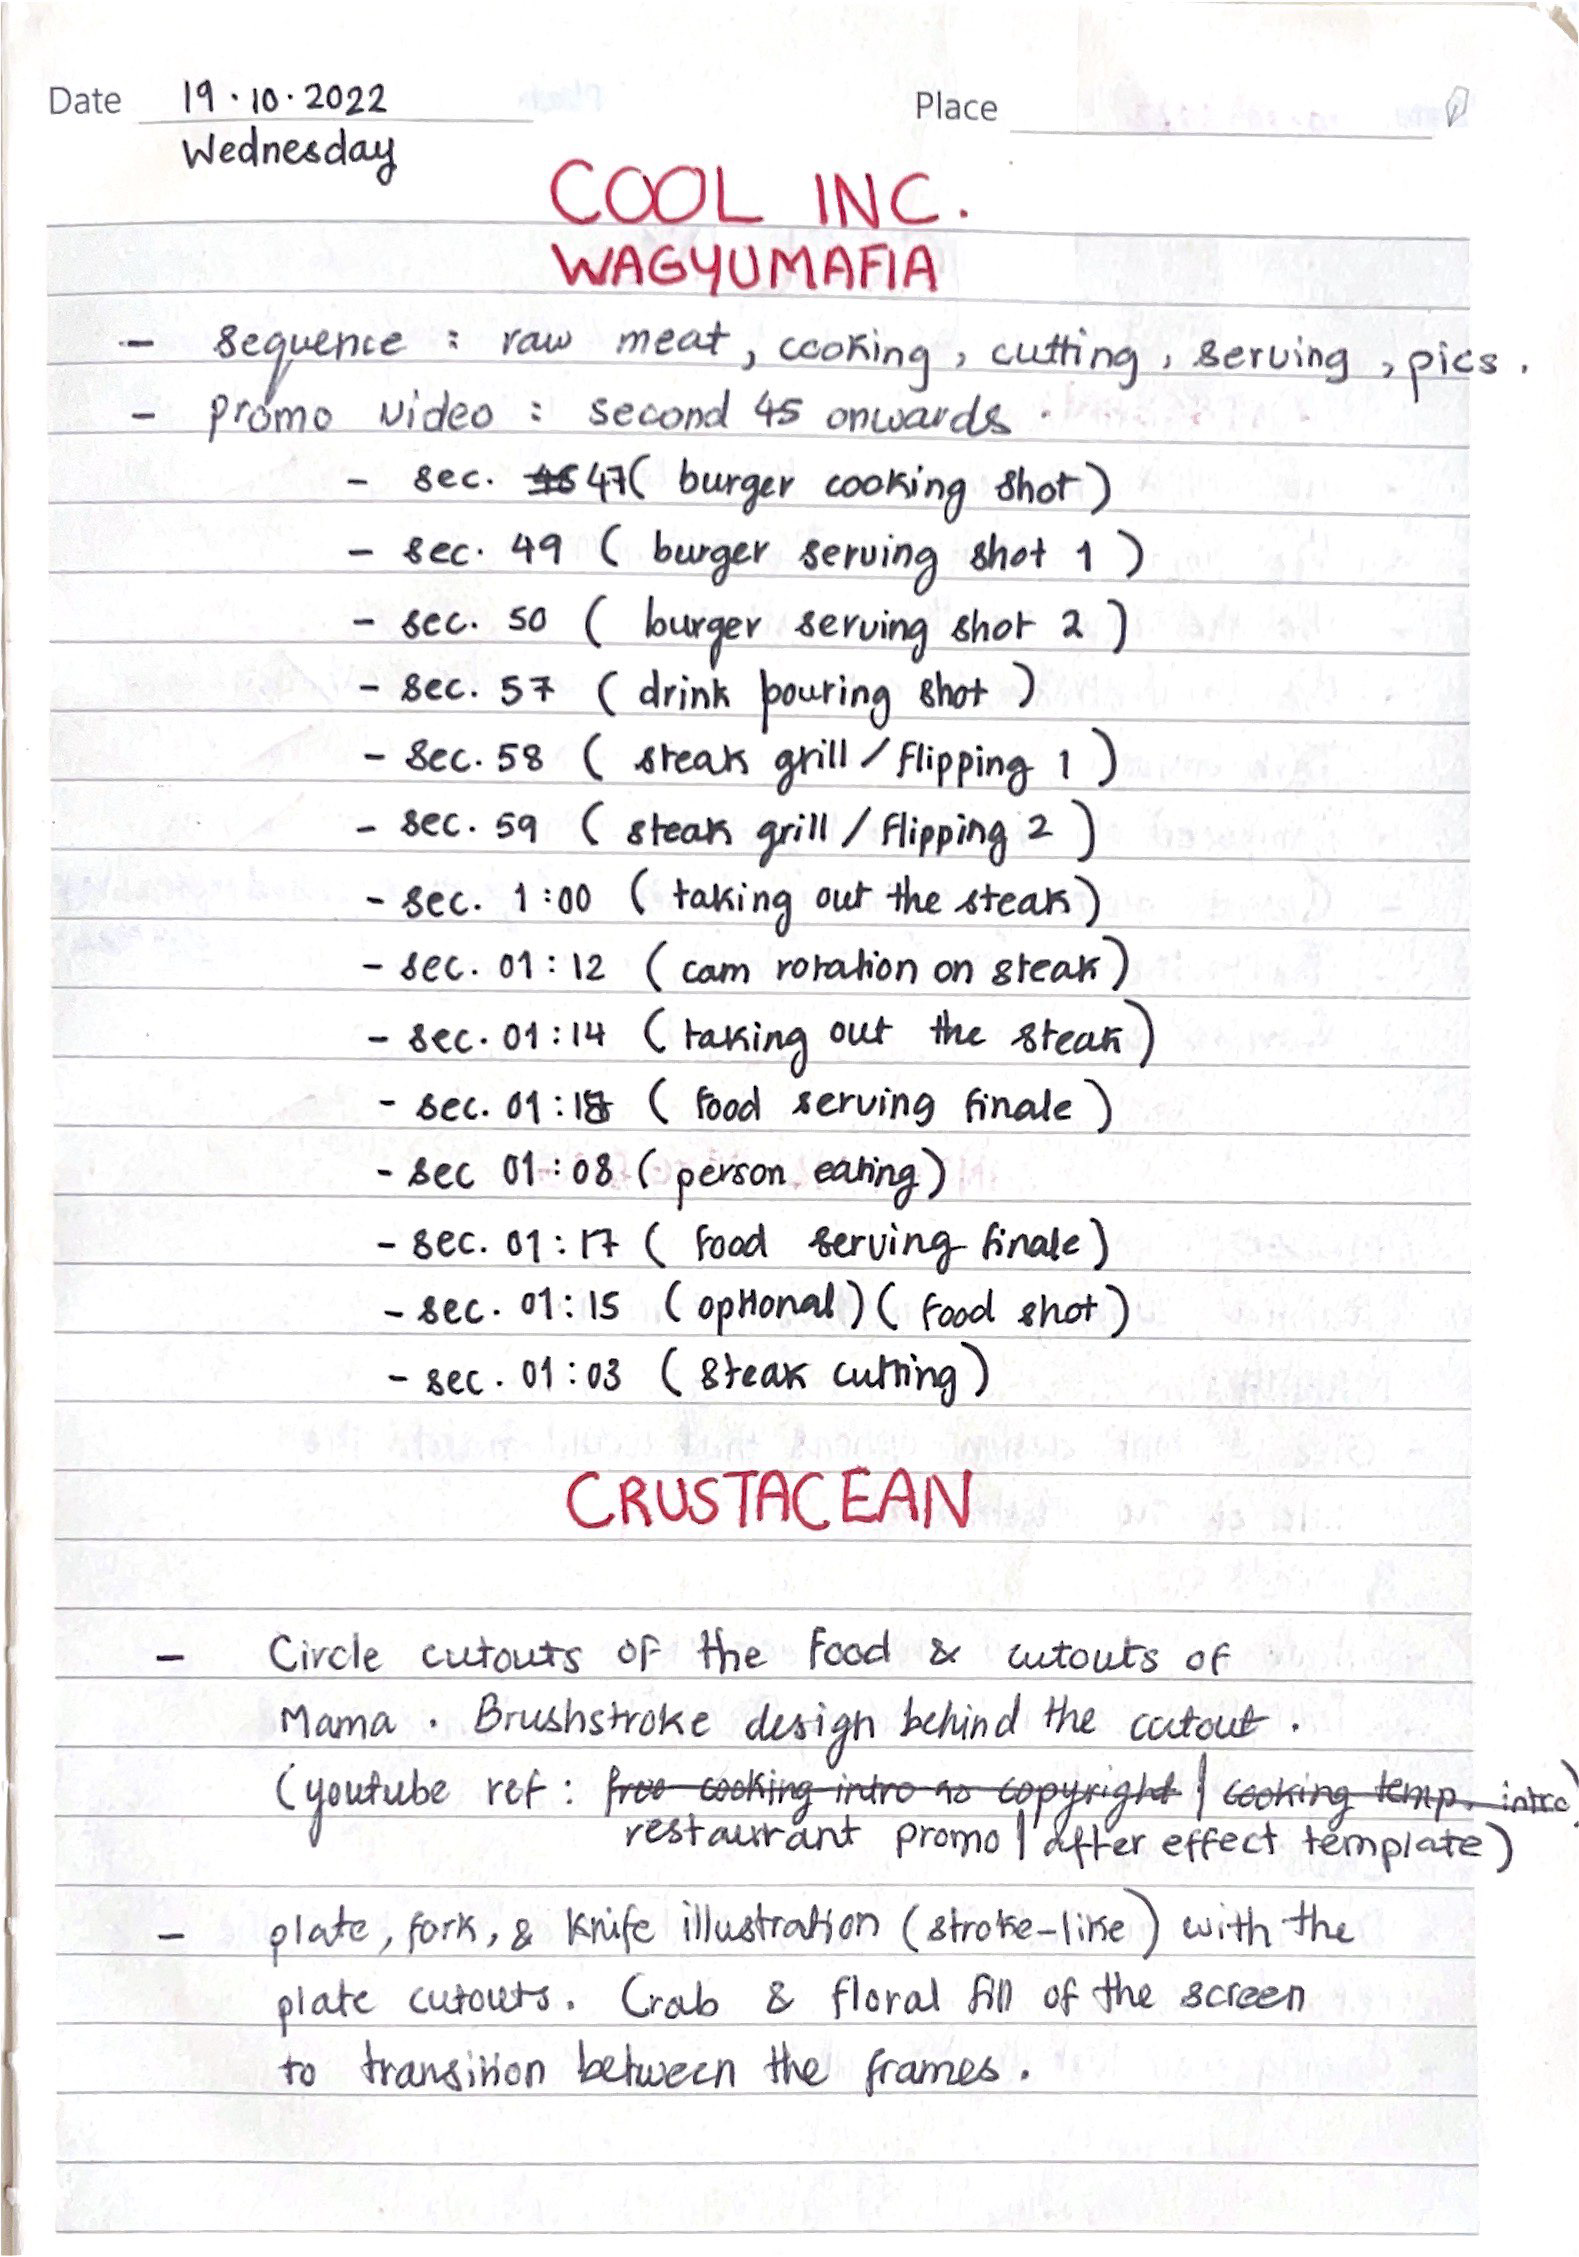 Date 19.10.2022 Place
Wednesday
COOL INC.
WAGYUMAFIA
- sequence : raw meat, cooking, cutting, serving, pics.
- promo video : second 45 onwards.
- sec. 47 ( burger cooking shot )
- sec. 49 ( burger serving shot 1 )
- sec. 50 ( burger serving shot 2 )
- sec. 57 ( drink pouring shot )
- sec. 58 ( steak grill / flipping 1 )
- sec. 59 ( steak grill / flipping 2 )
- sec. 1:00 ( taking out the steak )
- sec. 01:12 ( cam rotation on steak )
- sec. 01:14 ( taking out the steak )
- sec. ( food serving finale )
- sec 01:08 ( person eating )
- sec. 01:17 ( food serving finale )
- sec. 01:15 (optional) ( food shot )
- sec. 01:03 ( steak cutting )
CRUSTACEAN
- Circle cutouts of the food & cutouts of
Mama . Brushstroke design behind the cutout .
(youtube ref : free cooking intro no copyright | cooking temp. intro)
restaurant promo | after effect template)
- plate, fork, & knife illustration (stroke-like) with the
plate cutouts. Crab & floral fill of the screen
to transition between the frames .